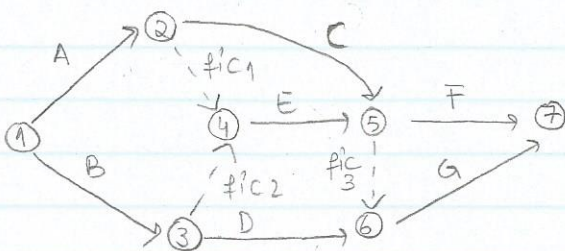 ② C
A fic1
① ④ E ⑤ F ⑦
B fic2 fic 3 G
③ D ⑥